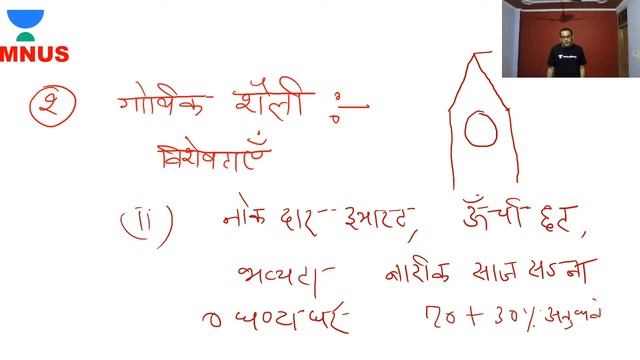 MNUS
२ गोथिक शैली :-
विशेषताएँ
(ii) नोक दार इमारट, ऊँची छत,
भव्यता बारीक साज सज्जा
० घण्टाघर 70 + 30%